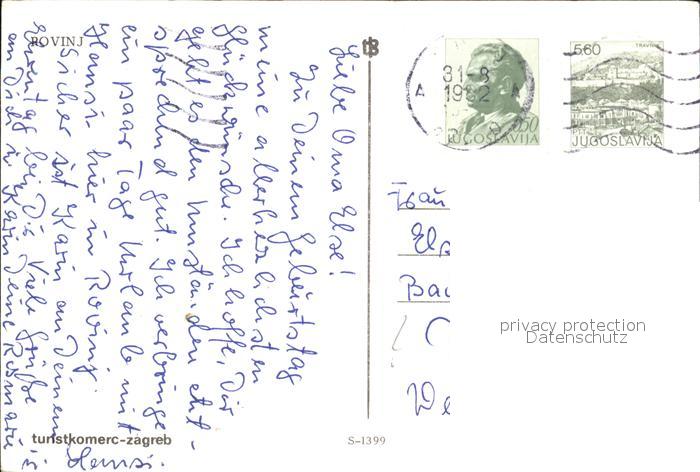 ROVINJ
Liebe Oma Else!
Zu Deinem Geburtstag
meine allerherzlichsten
Glückwünsche. Ich hoffe, Dir
geht es den Umständen ent-
sprechend gut. Ich verbringe
ein paar Tage Urlaub mit
Hansi hier in Rovinj.
Sicher ist Karin an Deinem
Ehrentag bei Dir. Viele Grüße
an Dich u. Karin Deine Rosmarie u.
Hansi.
turistkomerc-zagreb
S-1399
31-8
1982
A A
JUGOSLAVIJA
5.60
TRAVNIK
JUGOSLAVIJA
Frau
privacy protection
Datenschutz